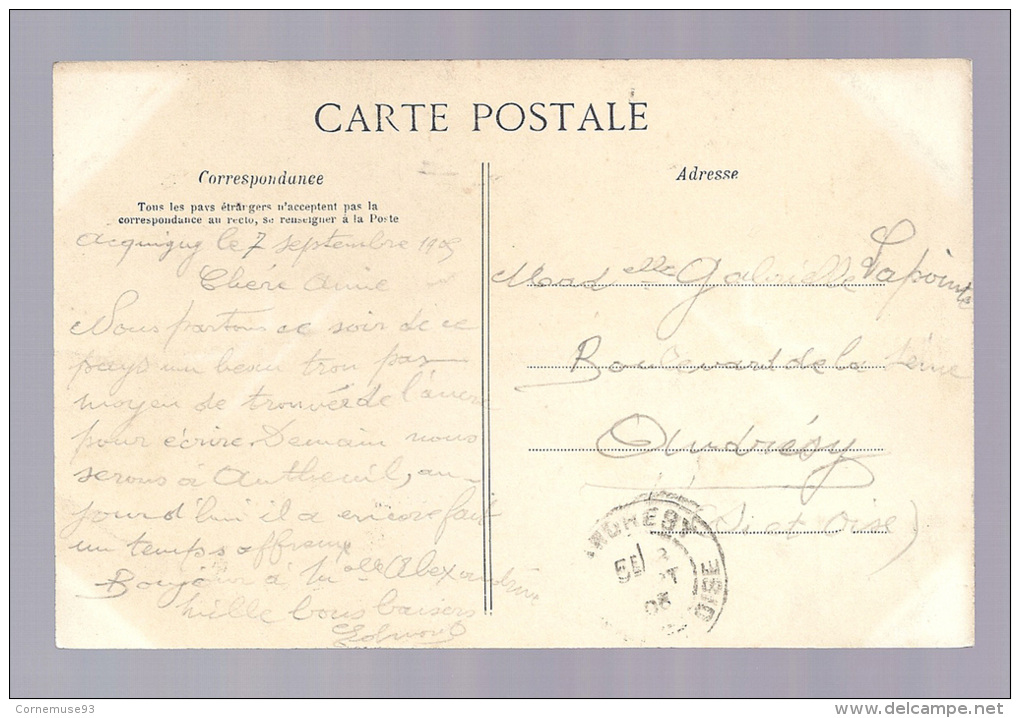 CARTE POSTALE
Correspondance
Tous les pays étrangers n'acceptent pas la
correspondance au recto, se renseigner à la Poste
Acquigny le 7 septembre 1905
Chère Amie
Nous partons ce soir de ce
pays un beau trou pas
moyen de trouver de l'ancre
pour écrire. Demain nous
serons à Autheuil, au-
jourd'hui il a encore fait
un temps affreux
Bonjour à Mlle Alexandrine
mille bons baisers
Edmond
Adresse
Mademelle Gabrielle Lapointe
Boulevard de la Seine
Andrésy
(S. et Oise)
ANDRESY
OISE
05
Cornemuse93
delcampe.net